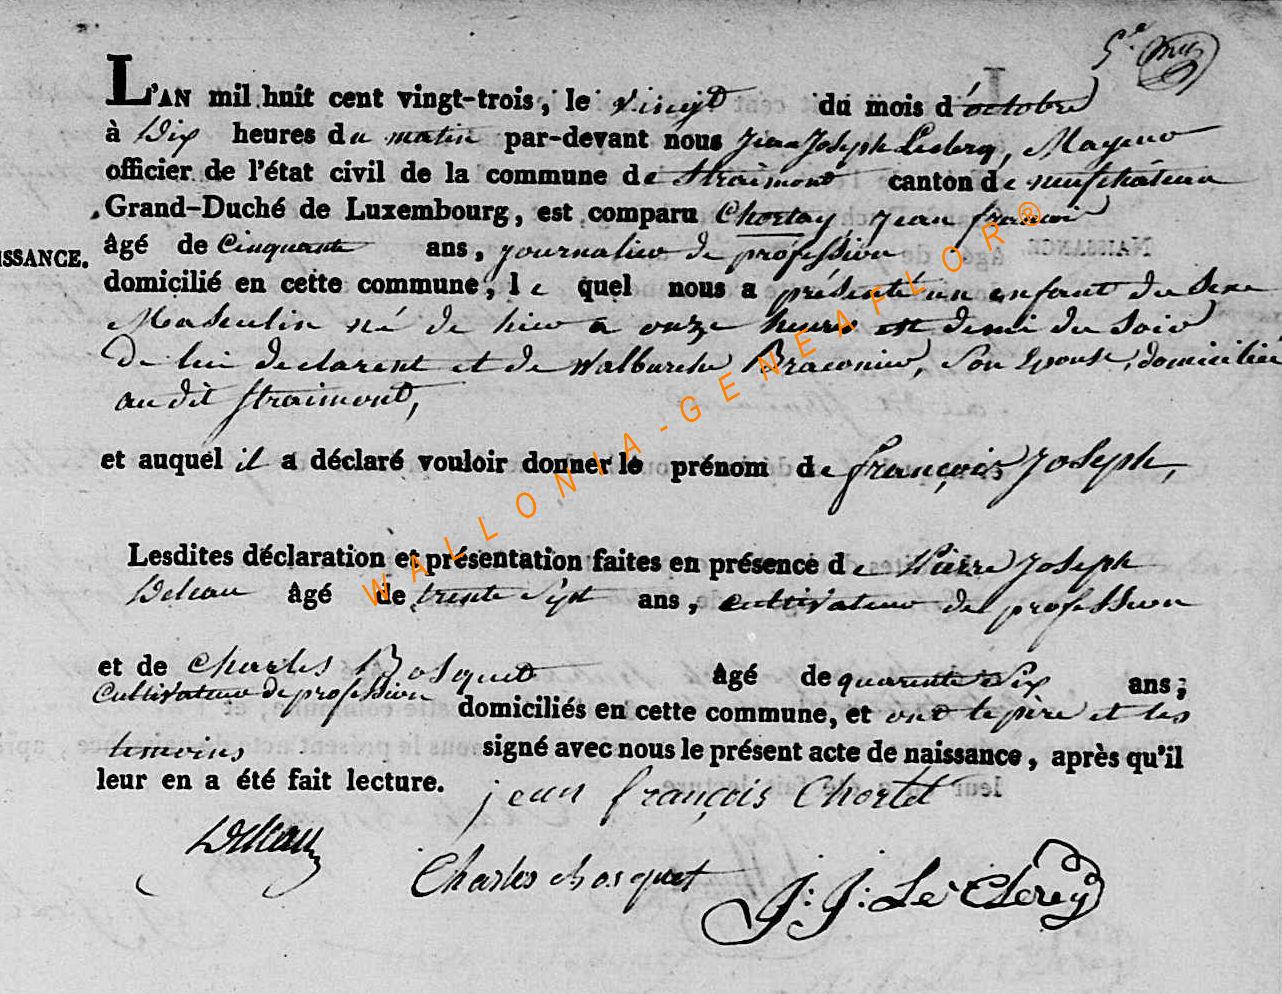 L'AN mil huit cent vingt-trois, le vingt du mois d'octobre
à Dix heures du matin par-devant nous Jean Joseph Leclercq, Mayeur
officier de l'état civil de la commune de Straimont canton de neufchâteau
Grand-Duché de Luxembourg, est comparu Chortay, jean francois
ISSANCE. âgé de Cinquante ans, journalier de profession
domicilié en cette commune, le quel nous a présenté un enfant du Sexe
Masculin né de hier a onze heures et demi du Soir
De lui declarent et de Walburche Braconier, Son Epouse, domiciliée
au dit Straimont,
et auquel il a déclaré vouloir donner le prénom de françois Joseph,
Lesdites déclaration et présentation faites en présence de Pierre Joseph
Deleau âgé de trente Sept ans, cultivateur de profession
et de Charles Bosquet âgé de quarante Six ans;
Cultivateur de profession domiciliés en cette commune, et ont le père et les
temoins signé avec nous le présent acte de naissance, après qu'il
leur en a été fait lecture. jean françois Chortet
Deleau
Charles bosquet J: J: Le Clercq
WALLONIA-GENEAFLOR®